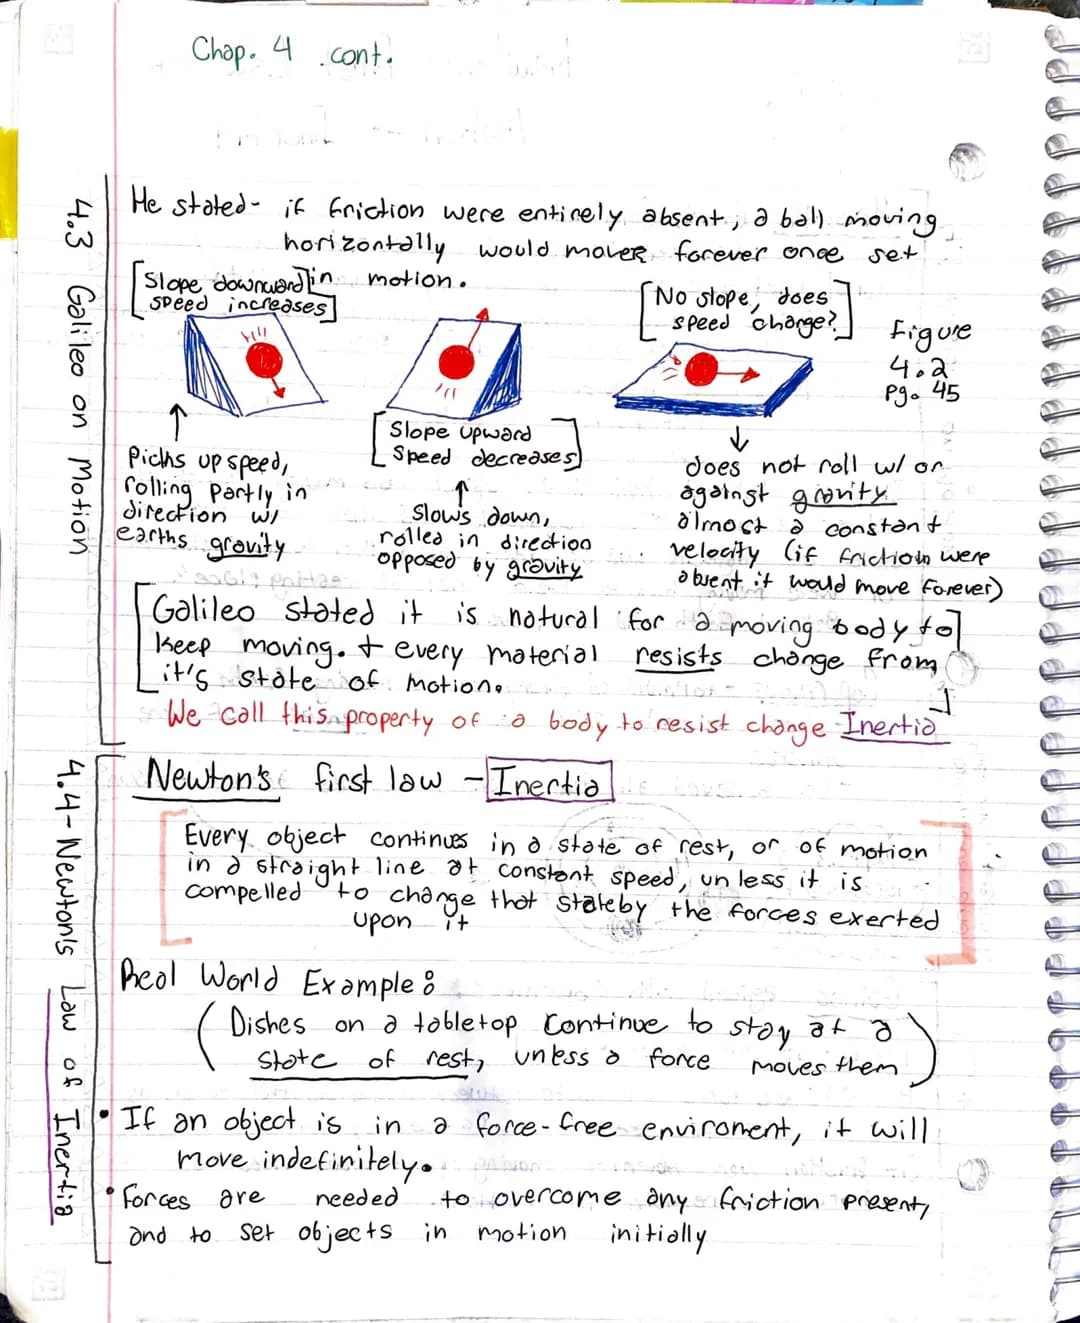 Chap. 4 cont.
4.3 Galileo on Motion
He stated- if friction were entirely absent, a ball moving
horizontally would mover forever once set
in motion.
[Slope downward
speed increases]
[No slope, does
speed change?]
Figure
4.2
pg. 45
[Slope upward
Speed decreases]
Picks up speed,
rolling partly in
direction w/
earths gravity
Slows down,
rolled in direction
opposed by gravity
does not roll w/ or
against gravity
almost a constant
velocity (if friction were
absent it would move forever)
[Galileo stated it is natural for a moving body to
keep moving. + every material resists change from
it's state of motion.]
We call this property of a body to resist change Inertia
4.4- Newton's Law of Inertia
Newton's first law - Inertia
[Every object continues in a state of rest, or of motion
in a straight line at constant speed, unless it is
compelled to change that state by the forces exerted
upon it]
Real World Example:
(Dishes on a tabletop continue to stay at a
state of rest, unless a force moves them)
• If an object is in a force-free enviroment, it will
move indefinitely.
• Forces are needed to overcome any friction present,
and to set objects in motion initially